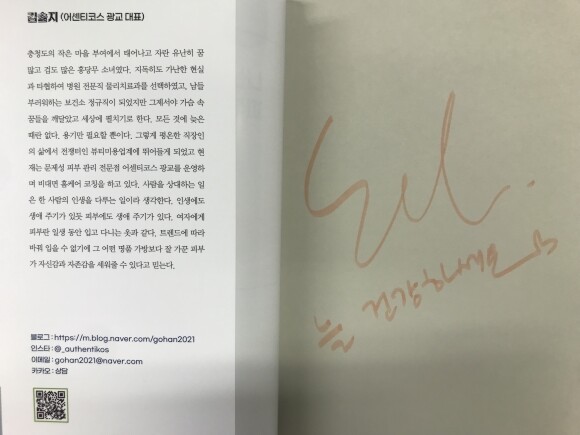 김솔지 (어센티코스 광교 대표)
충청도의 작은 마을 부여에서 태어나고 자란 유난히 꿈
많고 겁도 많은 홍당무 소녀였다. 지독히도 가난한 현실
과 타협하여 병원 전문직 물리치료과를 선택하였고, 남들
부러워하는 보건소 정규직이 되었지만 그제서야 가슴 속
꿈들을 깨달았고 세상에 펼치기로 한다. 모든 것에 늦은
때란 없다. 용기만 필요할 뿐이다. 그렇게 평온한 직장인
의 삶에서 전쟁터인 뷰티미용업계에 뛰어들게 되었고 현
재는 문제성 피부 관리 전문점 어센티코스 광교를 운영하
며 비대면 홈케어 코칭을 하고 있다. 사람을 상대하는 일
은 한 사람의 인생을 다루는 일이라 생각한다. 인생에도
생애 주기가 있듯 피부에도 생애 주기가 있다. 여자에게
피부란 일생 동안 입고 다니는 옷과 같다. 트렌드에 따라
바꿔 입을 수 없기에 그 어떤 명품 가방보다 잘 가꾼 피부
가 자신감과 자존감을 세워줄 수 있다고 믿는다.
블로그 : https://m.blog.naver.com/gohan2021
인스타 : @_authentikos
이메일 : gohan2021@naver.com
카카오 : 상담
늘 건강하세요